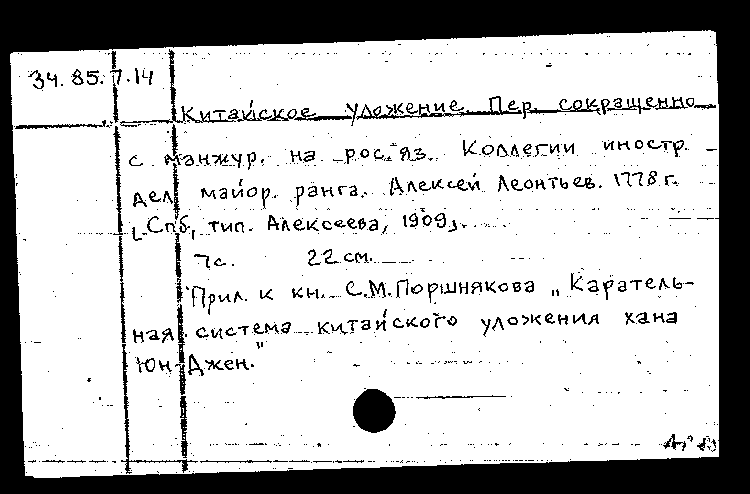 34. 85. 7.14
Китайское уложение. Пер. сокращенно
с манжур. на рос. яз. Коллегии иностр.
дел майор. ранга. Алексей Леонтьев. 1778 г.
[Спб, тип. Алексеева, 1909].
7 с. 22 см.
Прил. к кн. С.М. Поршнякова „Каратель-
ная система китайского уложения хана
Юн-Джен."